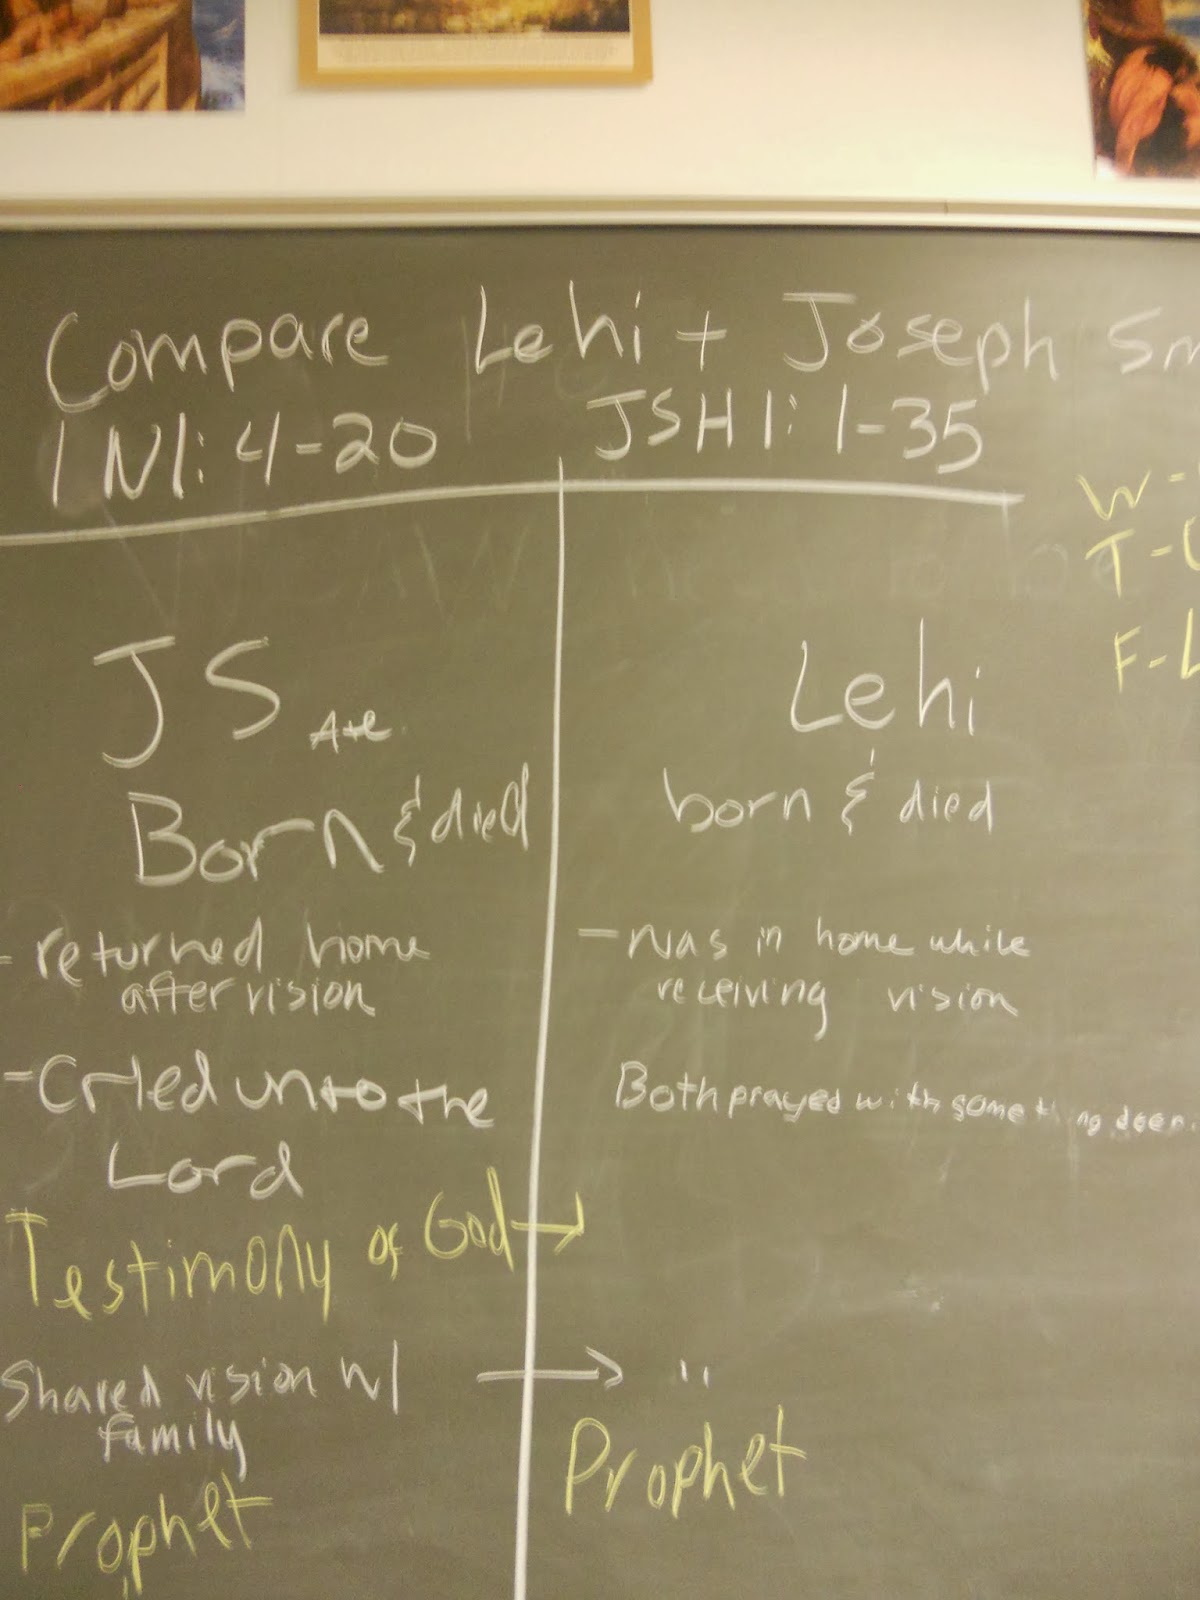 Compare Lehi + Joseph Sm
1 N 1: 4-20 JSH 1: 1-35
W -
T -
F - L
JS Ate
Born & died
- returned home
after vision
- Cried unto the
Lord
Testimony of God →
Shared vision w/ → "
family
Prophet
Lehi
born & died
- Was in home while
receiving vision
Both prayed with something deer.
Prophet